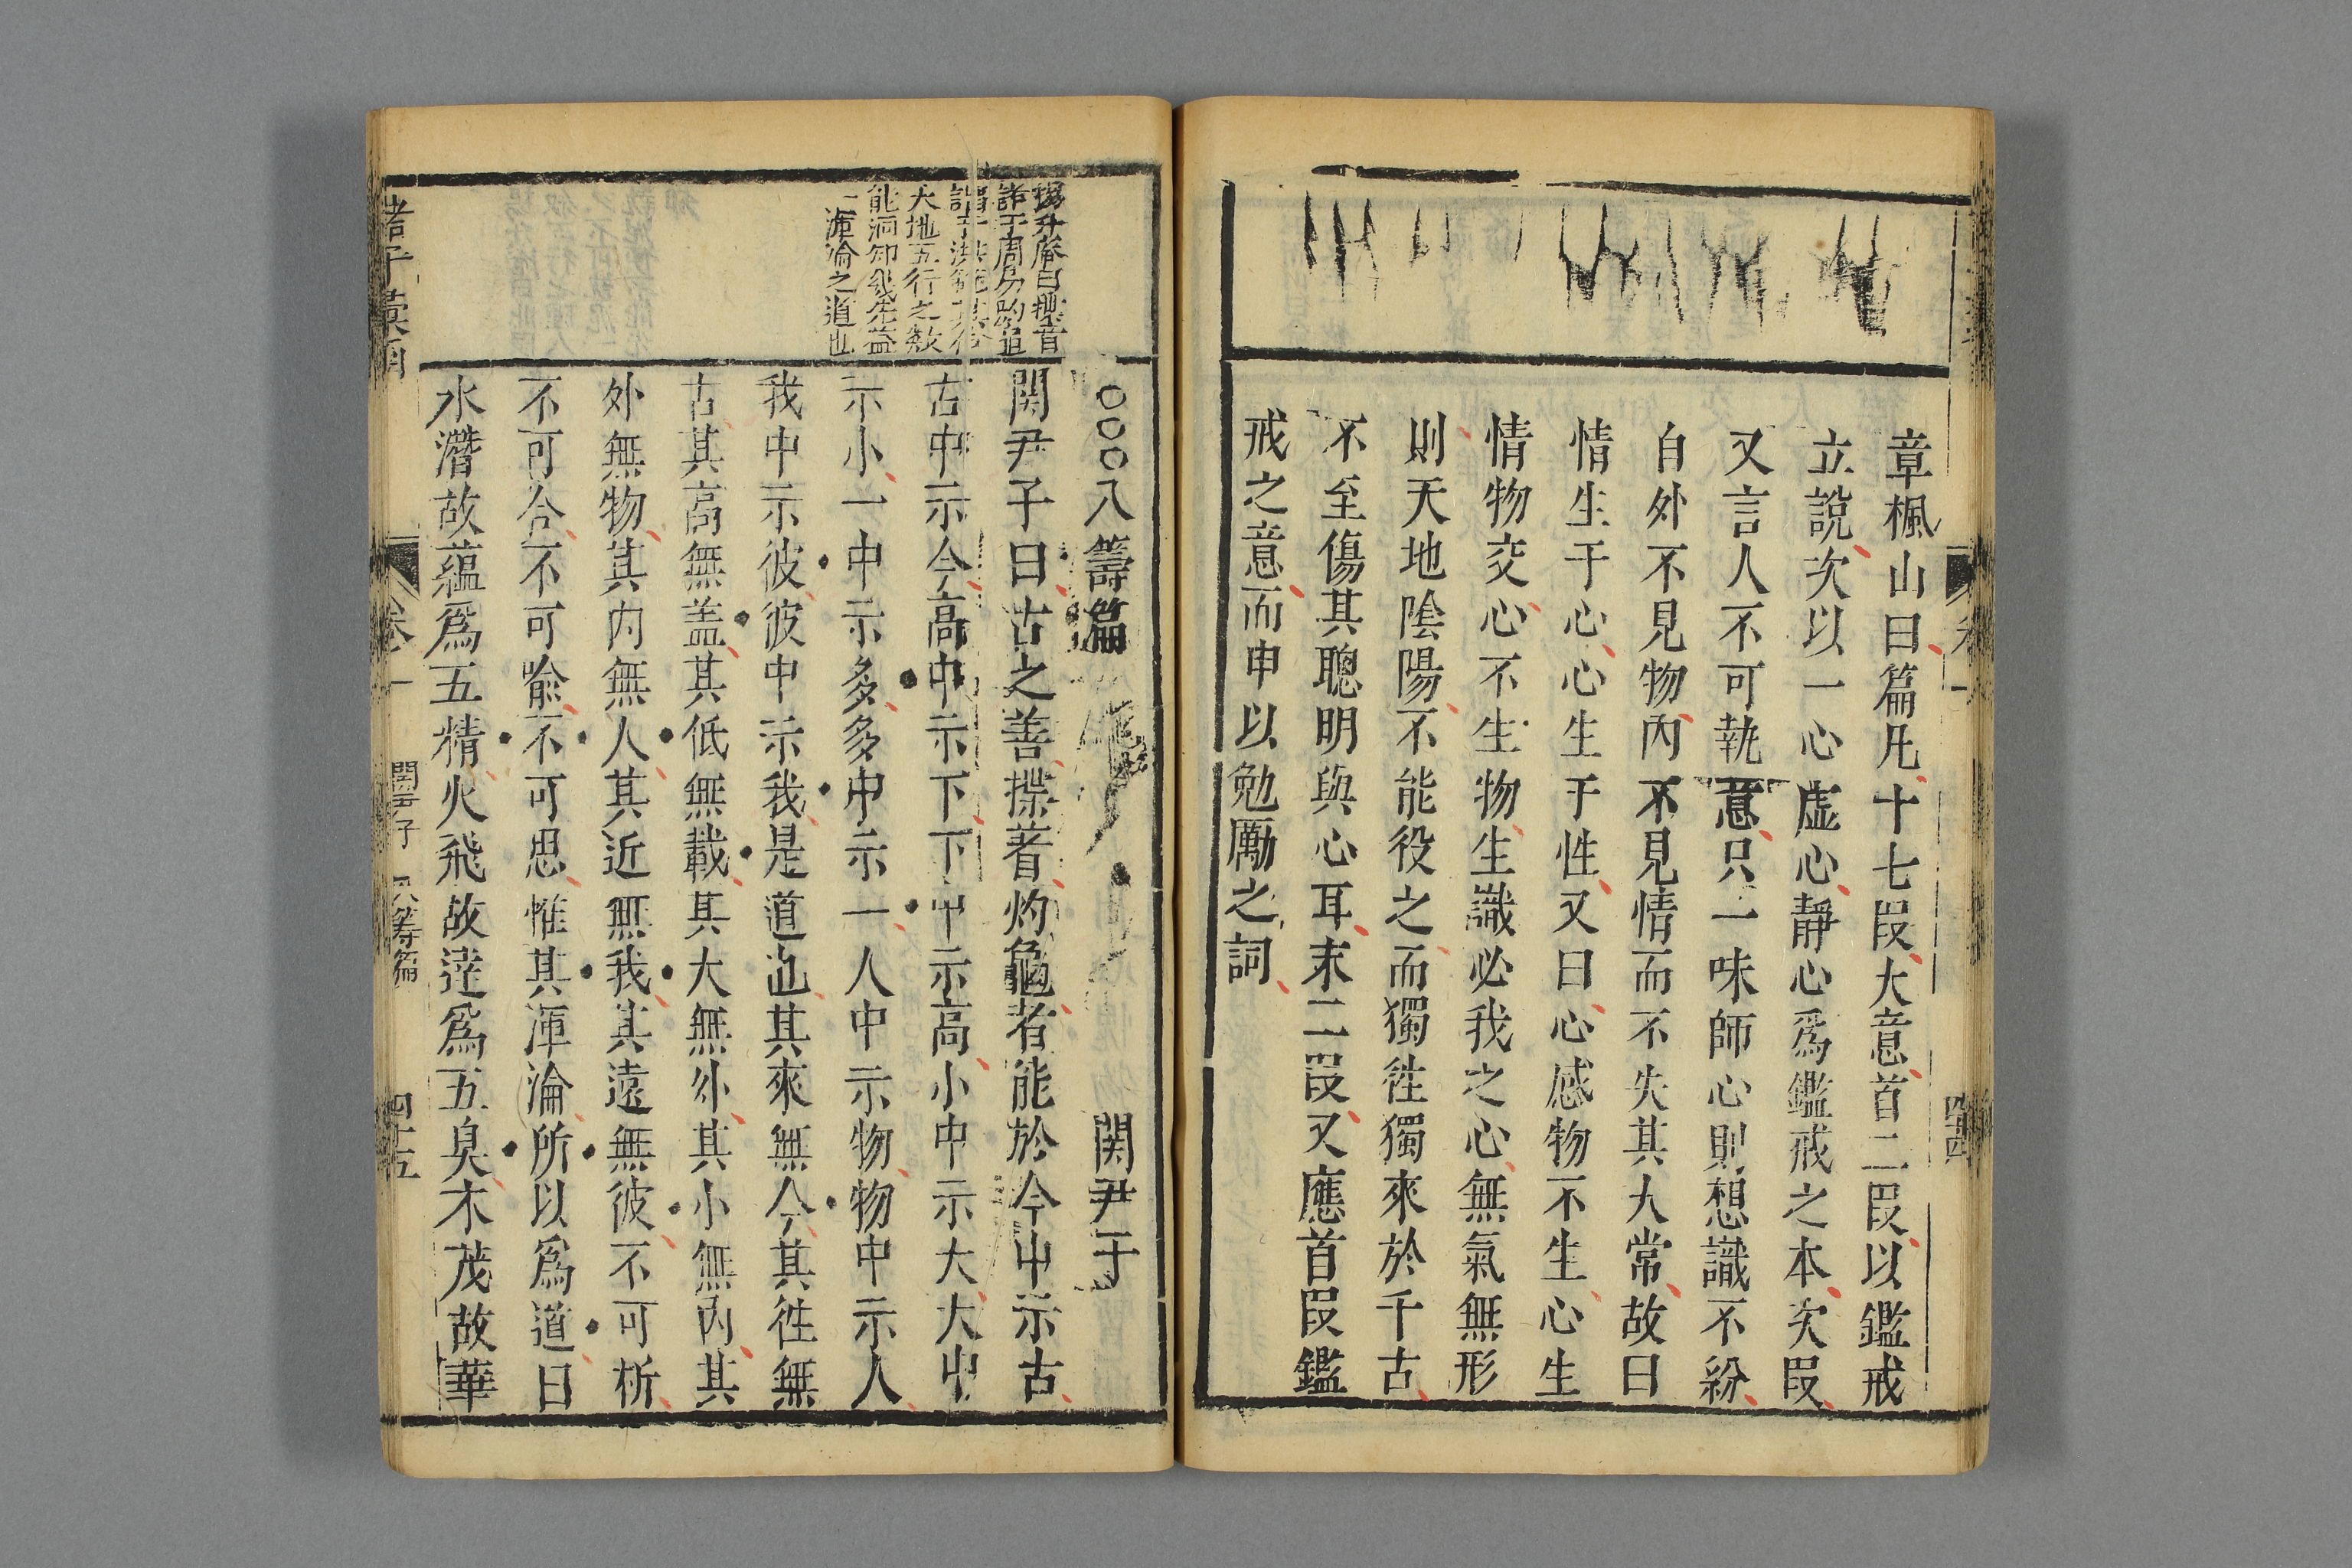 章楓山曰篇凡十七段大意首二段以鑑戒
立説次以一心虚心靜心爲鑑戒之本次段
又言人不可執意只一味師心則想識不紛
自外不見物內不見情而不失其大常故曰
情生于心心生于性又曰心感物不生心生
情物交心不生物生識必我之心無氣無形
則天地陰陽不能役之而獨徃獨來於千古
不至傷其聰明與心耳末二段又應首段鑑
戒之意而申以勉勵之詞
〇〇〇八籌篇 関尹子
関尹子曰古之善揲蓍灼龜者能於今中示古
古中示今高中示下下中示高小中示大大中
示小一中示多多中示一人中示物物中示人
我中示彼彼中示我是道也其來無今其徃無
古其高無盖其低無載其大無外其小無內其
外無物其内無人其近無我其遠無彼不可析
不可合不可喻不可思惟其渾淪所以爲道曰
水潛故蘊爲五精火飛故達爲五臭木茂故華
楊升庵曰揲蓍
詐于周易灼龜

大地五行之數
能洞知幾先益
一渾淪之道也
諸子彙函
卷一
関尹子 八籌篇
四十五